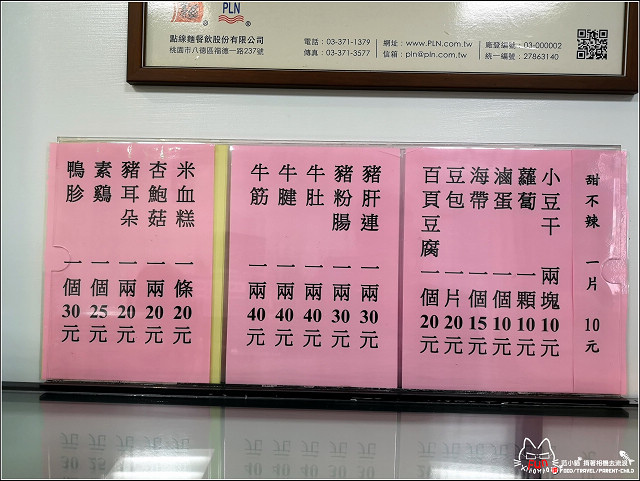 PLN
點線麵餐飲股份有限公司
桃園市八德區福德一路237號
電話：03-371-1379
傳真：03-371-3577
網址：www.PLN.com.tw
信箱：pln@pln.com.tw
廠發編號：03-000002
統一編號：27863140
甜不辣 一片 10元
小豆干 兩塊10元
蘿蔔 一顆10元
滷蛋 一個10元
海帶 一個15元
豆包 一片20元
百頁豆腐 一個20元
豬肝連 一兩30元
豬粉腸 一兩30元
牛肚 一兩40元
牛腱 一兩40元
牛筋 一兩40元
米血糕 一條20元
杏鮑菇 一兩20元
豬耳朵 一兩20元
素鷄 一個25元
鴨胗 一個30元
揹著相機去流浪
FOOD/TRAVEL/PARENT-CHILD